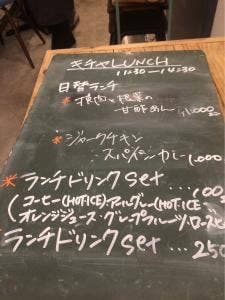 キチャLUNCH
11:30—14:30
日替ランチ
* 豚肉と根菜の
甘酢あん 1,000
* ジャークチキン
スパイシーカレー 1,000
* ランチドリンクset ... 100
(コーヒー(HOT・ICE)・アールグレー(HOT・ICE
オレンジジュース・グレープフルーツ・ローズヒ
ランチドリンクset ... 250